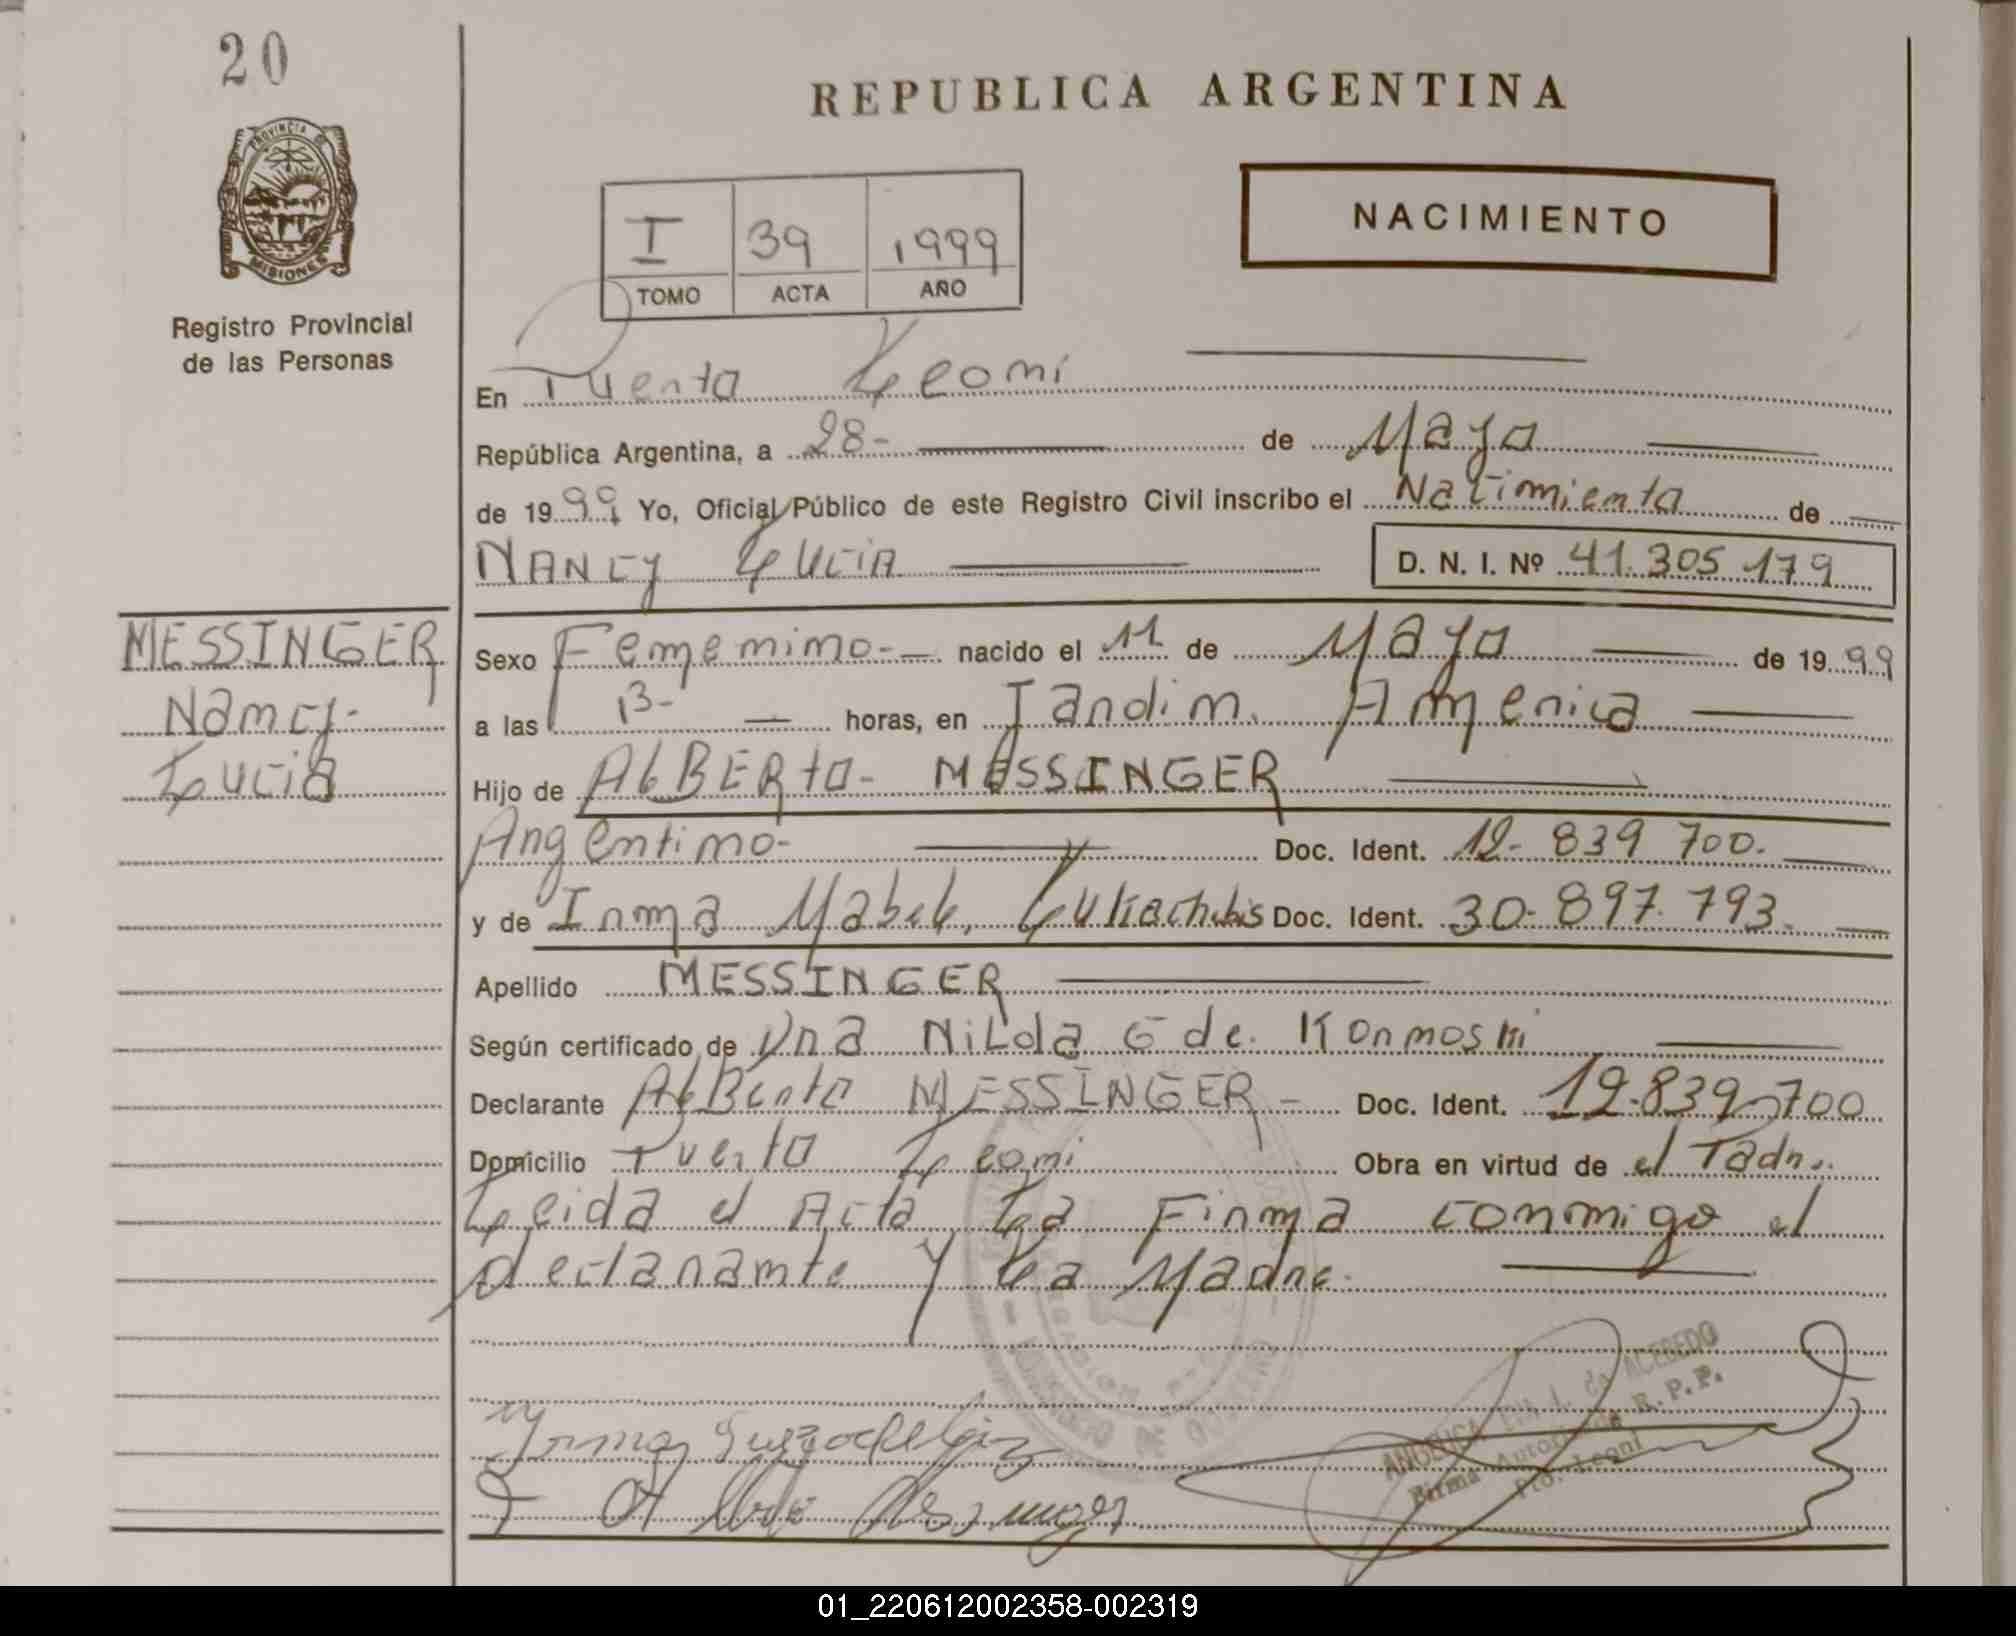 20
REPUBLICA ARGENTINA
PROVINCIA DE
MISIONES
Registro Provincial
de las Personas
I 39 1999
TOMO ACTA AÑO
NACIMIENTO
En Puerto Leoni
República Argentina, a 28- de Mayo
de 1999 Yo, Oficial Público de este Registro Civil inscribo el Nacimiento de
NANCY LUCIA D. N. I. Nº 41.305 179
MESSINGER
Nancy-
Lucia
Sexo Femenino- nacido el 11 de Mayo de 1999
a las 13- horas, en Jardin America
Hijo de ALBERto- MESSINGER
Argentino- Doc. Ident. 12- 839 700.
y de Irma Mabel, Doc. Ident. 30- 897. 793.
Apellido MESSINGER
Según certificado de Dra Nilda G de
Declarante Alberto MESSINGER - Doc. Ident. 12.839-700
Domicilio Puerto Leoni Obra en virtud de el Padre.
Leida el Acta La Firma conmigo el
declarante y La Madre.
Irma
ANGELICA L. de ACEBEDO
Firma Autorizada R. P. P.
Pto. Leoni
01_220612002358-002319